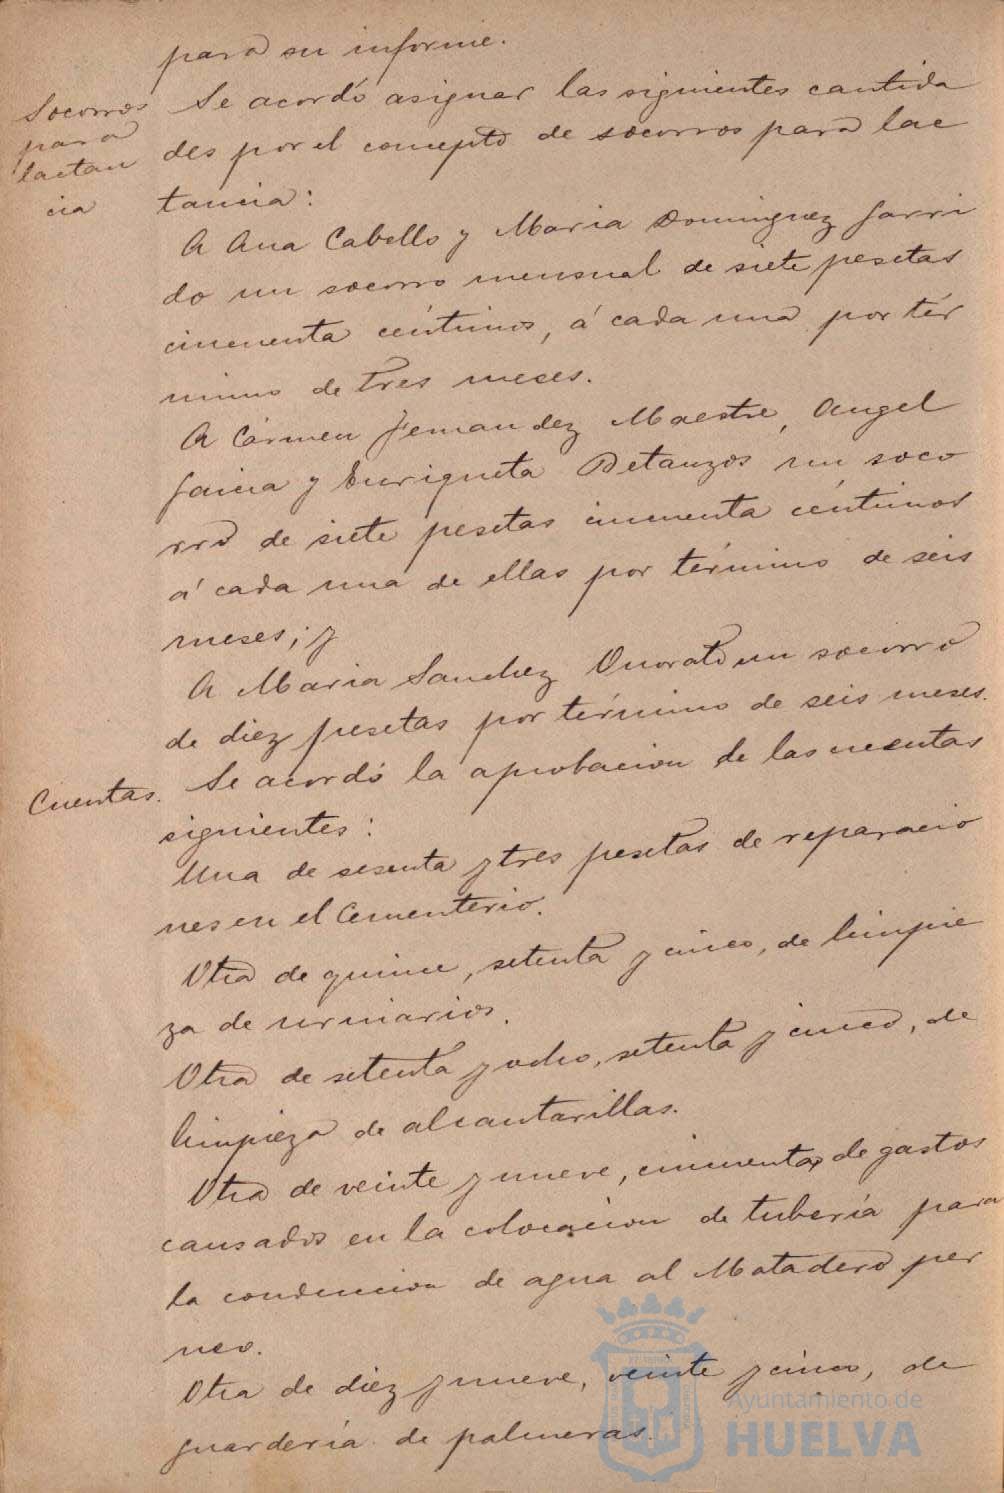 para su informe.
Socorros
para
lactan
cia
Se acordó asignar las siguientes cantida
des por el concepto de socorros para lac
tancia:
A Ana Cabello y Maria Dominguez Garri
do un socorro mensual de siete pesetas
cincuenta céntimos, á cada una por tér
mino de tres meses.
A Cármen Fernandez Maestre, Angel
Garcia y Enriqueta Betanzos un soco
rro de siete pesetas cincuenta céntimos
á cada una de ellas por término de seis
meses; y
A Maria Sanchez Onorato un socorro
de diez pesetas por término de seis meses.
Cuentas.
Se acordó la aprobacion de las cuentas
siguientes:
Una de sesenta y tres pesetas de reparacio
nes en el Cementerio.
Otra de quince, setenta y cinco, de limpie
za de urinarios.
Otra de setenta y ocho, setenta y cinco, de
limpieza de alcantarillas.
Otra de veinte y nueve, cincuenta, de gastos
causados en la colocacion de tubería para
la conduccion de agua al Matadero per
neo.
Otra de diez y nueve, veinte y cinco, de
guardería de palmeras.
Ayuntamiento de
HUELVA